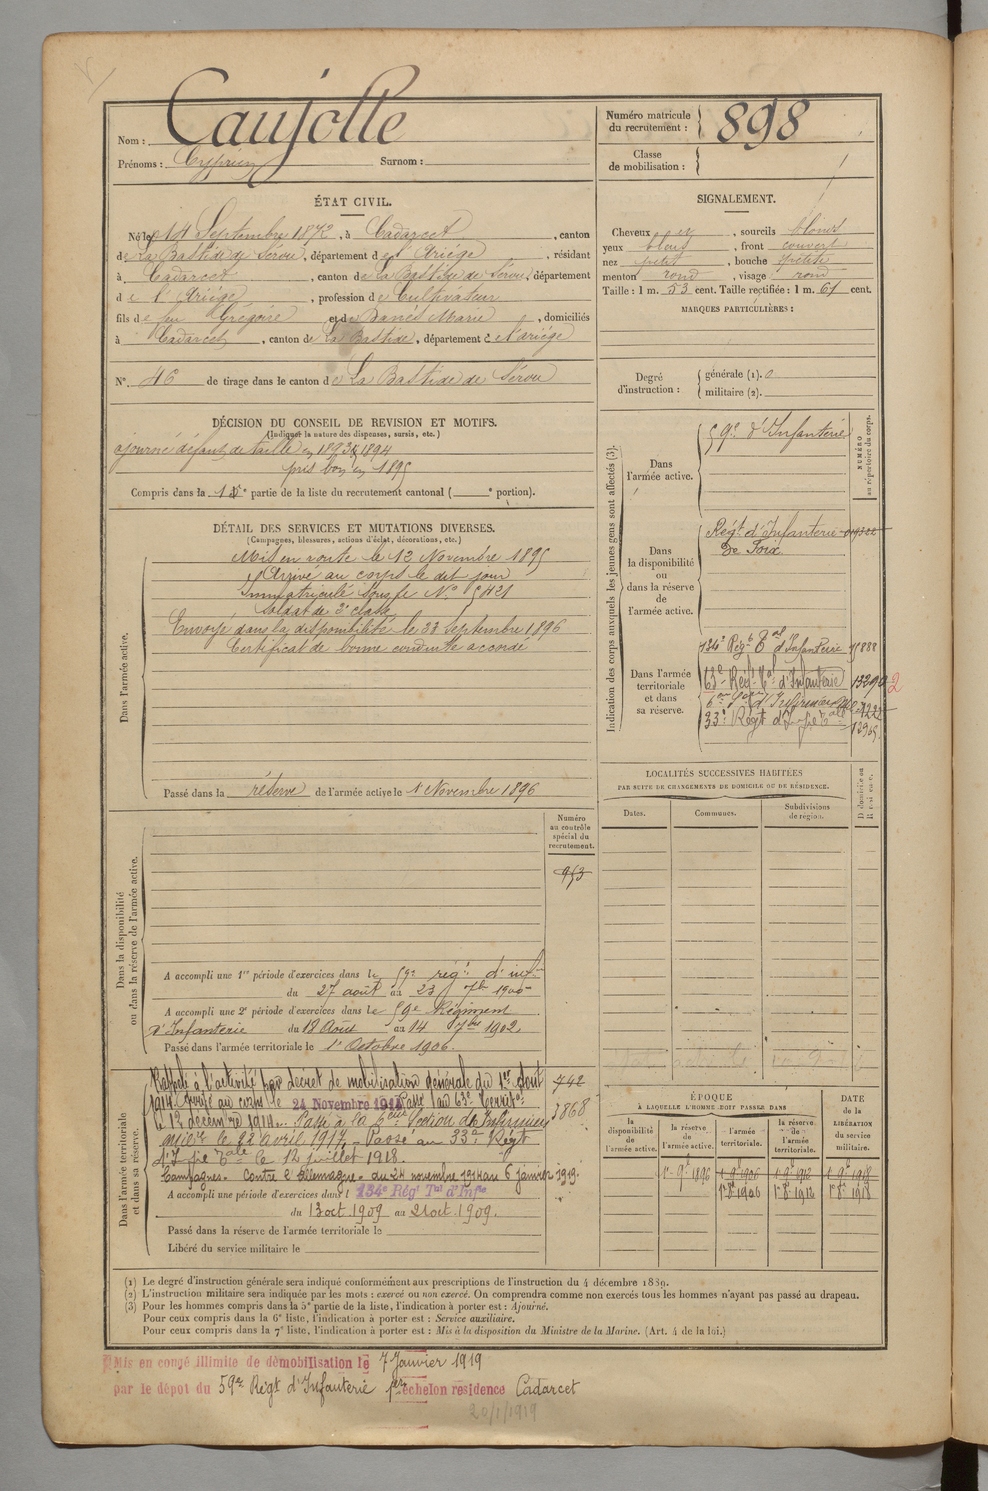 Nom : Caujolle
Prénoms : Cyprien Surnom :
Numéro matricule du recrutement : 898
Classe de mobilisation :
ÉTAT CIVIL.
Né le 14 Septembre 1872, à Cadarcet, canton
de La Bastide de Sérou, département de l'Ariége, résidant
à Cadarcet, canton de La Bastide de Sérou, département
de l'Ariége, profession de Cultivateur
fils de feu Grégoire et de Danès Marie, domiciliés
à Cadarcet, canton de La Bastide, département de l'ariége
N° 46 de tirage dans le canton de La Bastide de Sérou
SIGNALEMENT.
Cheveux et, sourcils blonds
yeux bleus, front couvert
nez petit, bouche petite
menton rond, visage rond
Taille : 1 m. 53 cent. Taille rectifiée : 1 m. 61 cent.
MARQUES PARTICULIÈRES :
Degré d'instruction : générale (1). 0
militaire (2).
DÉCISION DU CONSEIL DE REVISION ET MOTIFS.
(Indiquer la nature des dispenses, sursis, etc.)
ajourné défaut de taille en 1893 & 1894
pris bon en 1895
Compris dans la 1re partie de la liste du recrutement cantonal ( e portion).
DÉTAIL DES SERVICES ET MUTATIONS DIVERSES.
(Campagnes, blessures, actions d'éclat, décorations, etc.)
Dans l'armée active.
Mis en route le 12 Novembre 1895
Arrivé au corps le dit jour
Immatriculé sous le N° 5421
Soldat de 2e classe
Envoyé dans la disponibilité le 23 Septembre 1896
Certificat de bonne conduite accordé
Passé dans la réserve de l'armée active le 1 Novembre 1896
Indication des corps auxquels les jeunes gens sont affectés (3).
NUMÉRO au répertoire du corps.
Dans l'armée active.
59e d'Infanterie
Dans la disponibilité ou dans la réserve de l'armée active.
Régt d'Infanterie
de Foix
Dans l'armée territoriale et dans sa réserve.
134e Régt Tal d'Infanterie
63e Régt Tal d'Infanterie
33e Régt d'Infie Tale
LOCALITÉS SUCCESSIVES HABITÉES
PAR SUITE DE CHANGEMENTS DE DOMICILE OU DE RÉSIDENCE.
Dates. Communes. Subdivisions de région. D domicile ou R résidence.
Numéro au contrôle spécial du recrutement.
953
Dans la disponibilité ou dans la réserve de l'armée active.
A accompli une 1re période d'exercices dans le 59e régt d'infie
du 27 août au 23 7bre 1900
A accompli une 2e période d'exercices dans le 59e Régiment
d'Infanterie du 18 Août au 14 7bre 1902
Passé dans l'armée territoriale le 1er Octobre 1906.
Dans l'armée territoriale et dans sa réserve.
Rappelé à l'activité par décret de mobilisation générale du 1er Août
1914 Arrivé au corps le 24 Novembre 1914 Passé au 63e Territo
le 12 décembre 1914. Passé à la 6eme Section de Infirmiers
milit. le 22 avril 1917. Passé au 33e Régt
d'Infie Tale le 12 juillet 1918.
Campagnes. Contre l'Allemagne. du 24 novembre 1914 au 6 janvier 1919.
742
3868
A accompli une période d'exercices dans l 134e Régt Tal d'Infie
du 13 oct. 1909 au 21 oct. 1909.
Passé dans la réserve de l'armée territoriale le
Libéré du service militaire le
ÉPOQUE
À LAQUELLE L'HOMME DOIT PASSER DANS
DATE de la LIBÉRATION du service militaire.
la disponibilité de l'armée active. la réserve de l'armée active. l'armée territoriale. la réserve de l'armée territoriale.
1er 9bre 1896 1er 9bre 1906 1er 9bre 1912 1er 9bre 1918
1er 8bre 1906 1er 8bre 1912 1er 8bre 1918
(1) Le degré d'instruction générale sera indiqué conformément aux prescriptions de l'instruction du 4 décembre 1889.
(2) L'instruction militaire sera indiquée par les mots : exercé ou non exercé. On comprendra comme non exercés tous les hommes n'ayant pas passé au drapeau.
(3) Pour les hommes compris dans la 5e partie de la liste, l'indication à porter est : Ajourné.
Pour ceux compris dans la 6e liste, l'indication à porter est : Service auxiliaire.
Pour ceux compris dans la 7e liste, l'indication à porter est : Mis à la disposition du Ministre de la Marine. (Art. 4 de la loi.)
Mis en congé illimité de démobilisation le 7 Janvier 1919
par le dépot du 59e Régt d'Infanterie 1er échelon résidence Cadarcet
20/1/1919